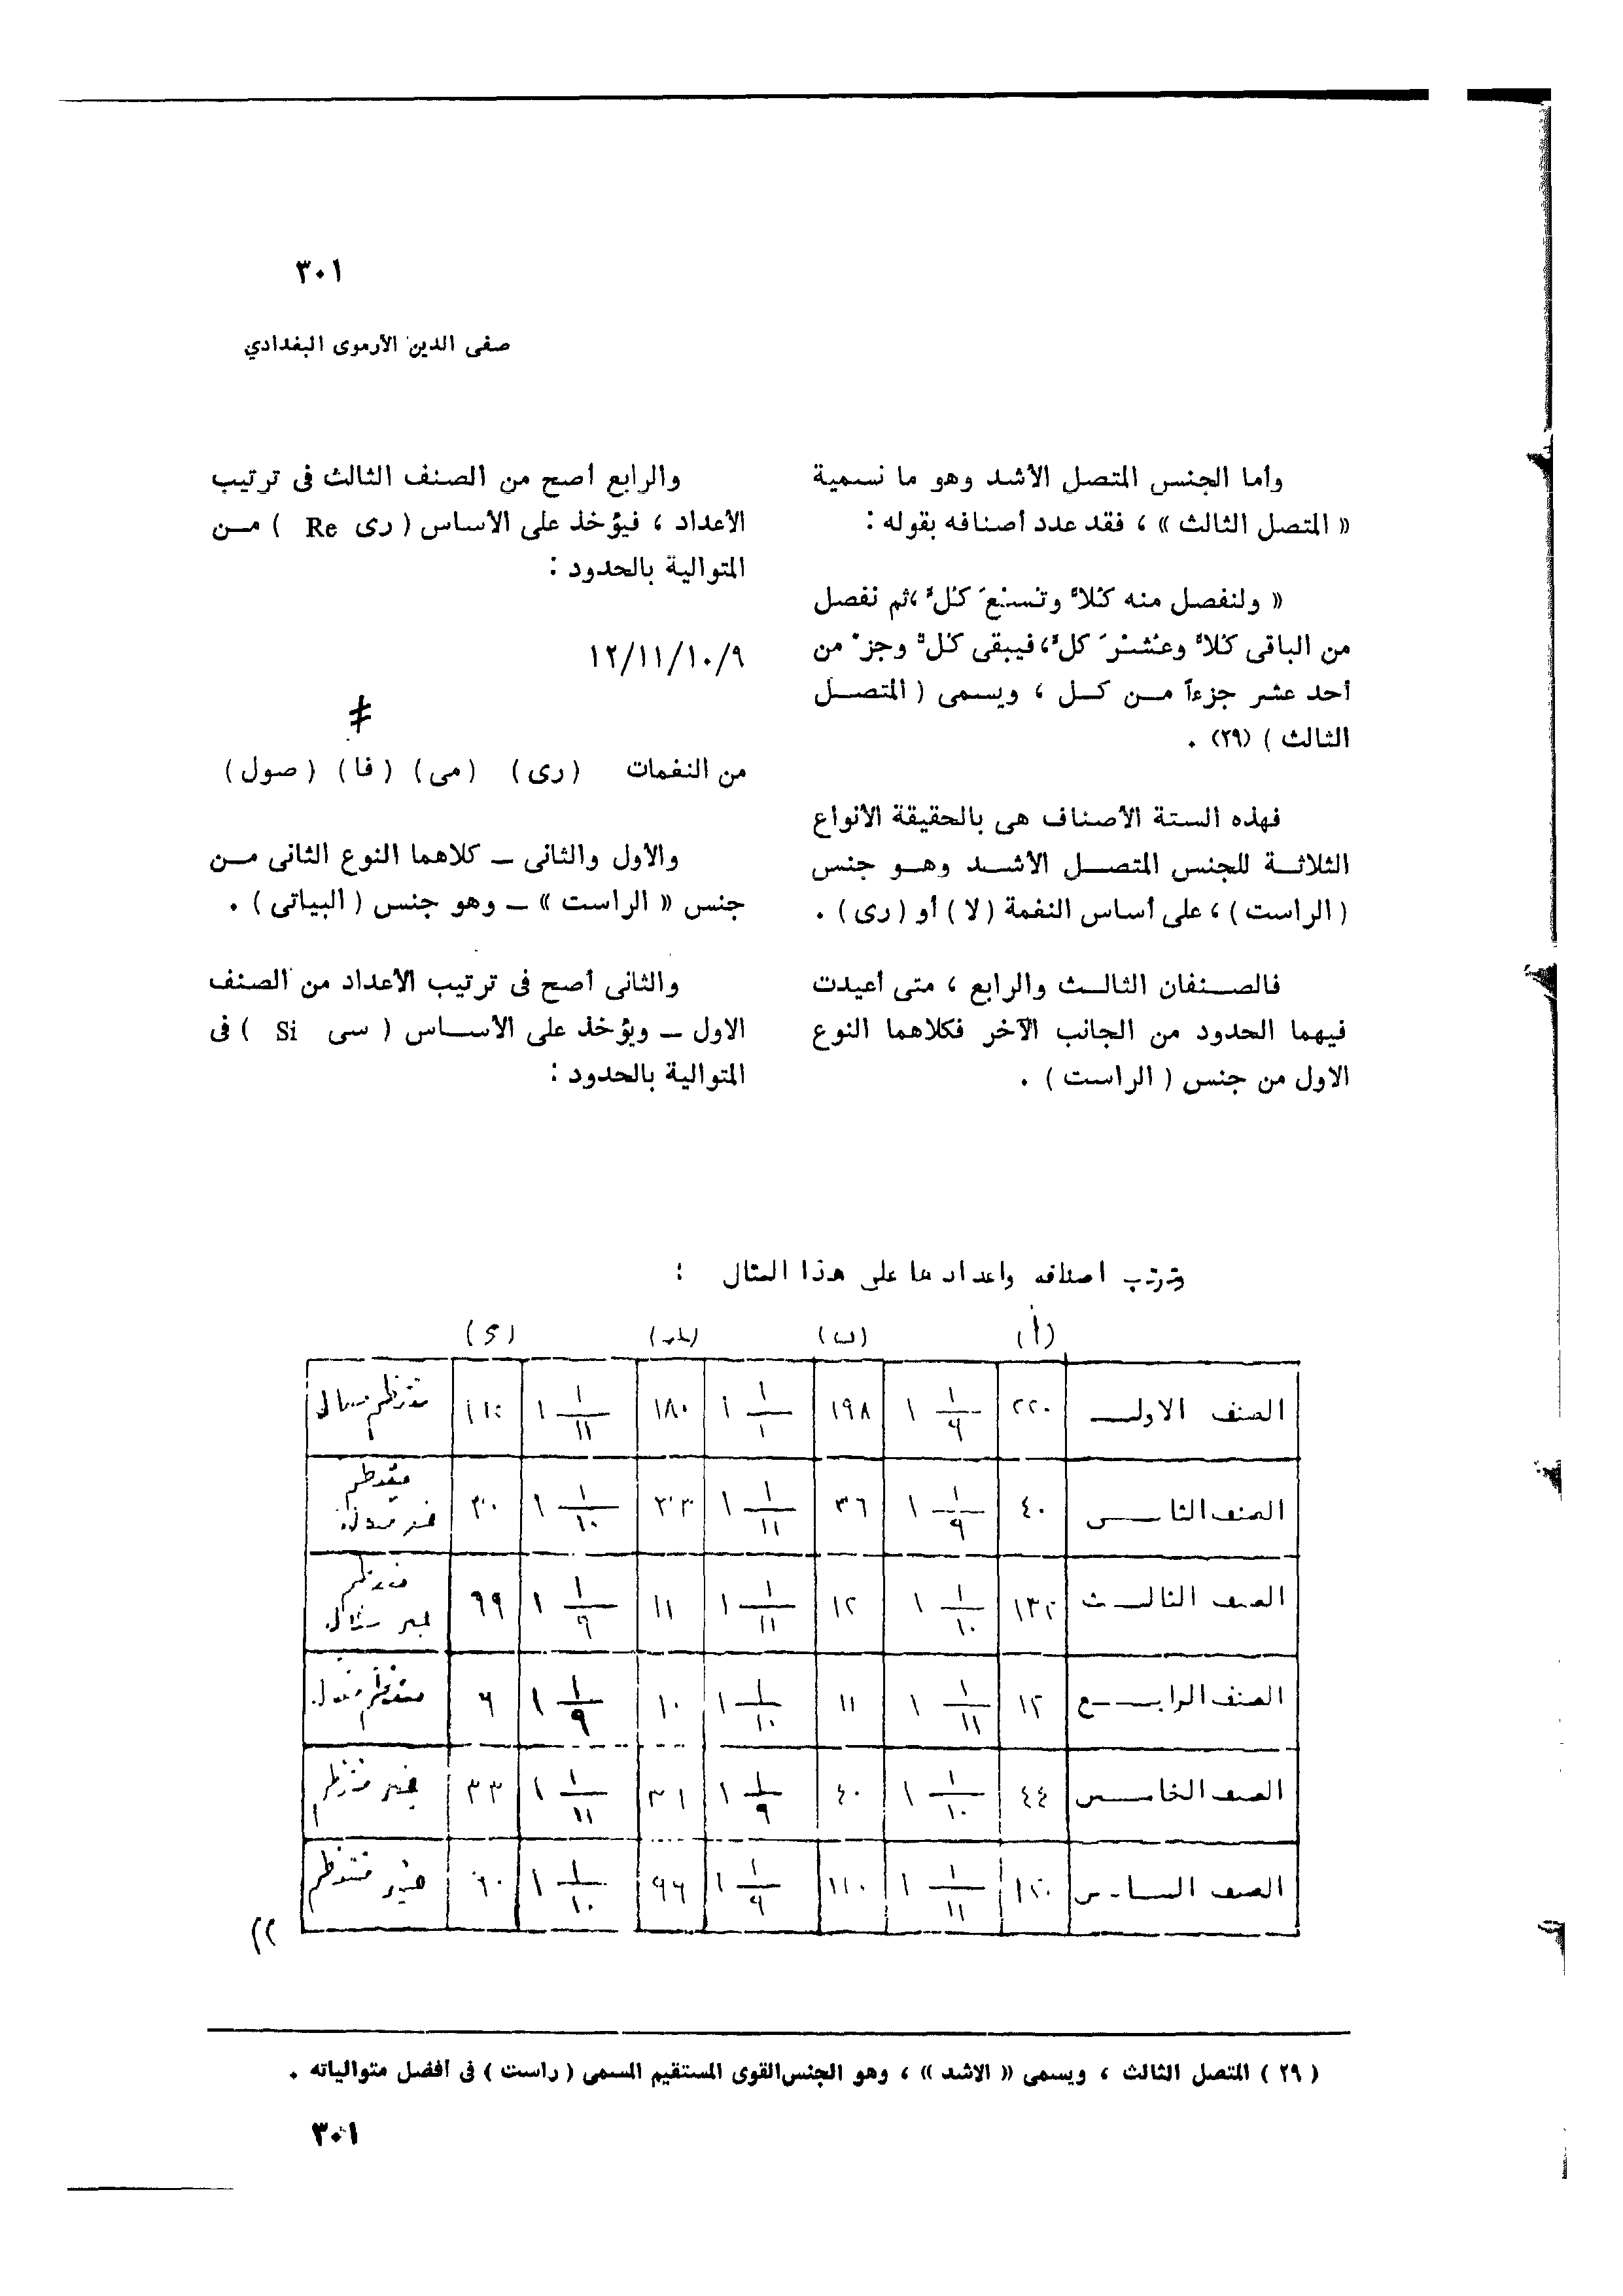 ٣٠١
صفى الدين الأرموى البغدادي
وأما الجنس المتصل الأشد وهو ما نسمية
« المتصل الثالث » ، فقد عدد أصنافه بقوله :
« ولنفصل منه كُلاًّ وتُسنْعَ كُلٍّ ،ثم نفصل
من الباقى كُلاًّ وعُشْرَ كلٍّ، فيبقى كُلٌّ وجزءٌ من
أحد عشر جزءاً مـن كـل ، ويسمى ( المتصـل
الثالث ) (٢٩) .
فهذه الستة الأصناف هى بالحقيقة الأنواع
الثلاثـة للجنس المتصـل الأشـد وهـو جنس
( الراست ) ، على أساس النغمة ( لا ) أو ( رى ) .
فالصـنفان الثالـث والرابع ، متى أعيدت
فيهما الحدود من الجانب الآخر فكلاهما النوع
الاول من جنس ( الراست ) .
والرابع أصح من الصنف الثالث فى ترتيب
الأعداد ، فيؤخذ على الأساس ( رى Re ) مـن
المتوالية بالحدود :
١٢/١١/١٠/٩
≠
من النغمات ( رى ) ( مى ) ( فا ) ( صول )
والأول والثانى ــ كلاهما النوع الثانى مـن
جنس « الراست » ــ وهو جنس ( البياتى ) .
والثانى أصح فى ترتيب الأعداد من الصنف
الاول ــ ويؤخذ على الأسـاس ( سى Si ) فى
المتوالية بالحدود :
وترتب اصنافه واعدادها على هذا المثال :
(أ) (ب) (جـ) (د)
الصنف الاول ٢٢٠ ١ ١/٩ ١٩٨ ١ ١/١٠ ١٨٠ ١ ١/١١
الصنف الثانى ٤٠ ١ ١/٩ ٣٦ ١ ١/١١ ٣٣ ١ ١/١٠ ٣٠
الصنف الثالث ١٣٢ ١ ١/١٠ ١٢ ١ ١/١١ ١١ ١ ١/٩ ٩٩
الصنف الرابع ١٢ ١ ١/١١ ١١ ١ ١/١٠ ١٠ ١ ١/٩ ٩
الصنف الخامس ٤٤ ١ ١/١٠ ٤٠ ١ ١/٩ ٣٦ ١ ١/١١ ٣٣ غير منتظم
الصنف السادس ١٢٠ ١ ١/١١ ١١٠ ١ ١/٩ ٩٩ ١ ١/١٠ ٩٠ غير منتظم
»
( ٢٩ ) المتصل الثالث ، ويسمى « الاشد » ، وهو الجنس القوى المستقيم المسمى ( راست ) فى أفضل متوالياته .
٣٠١